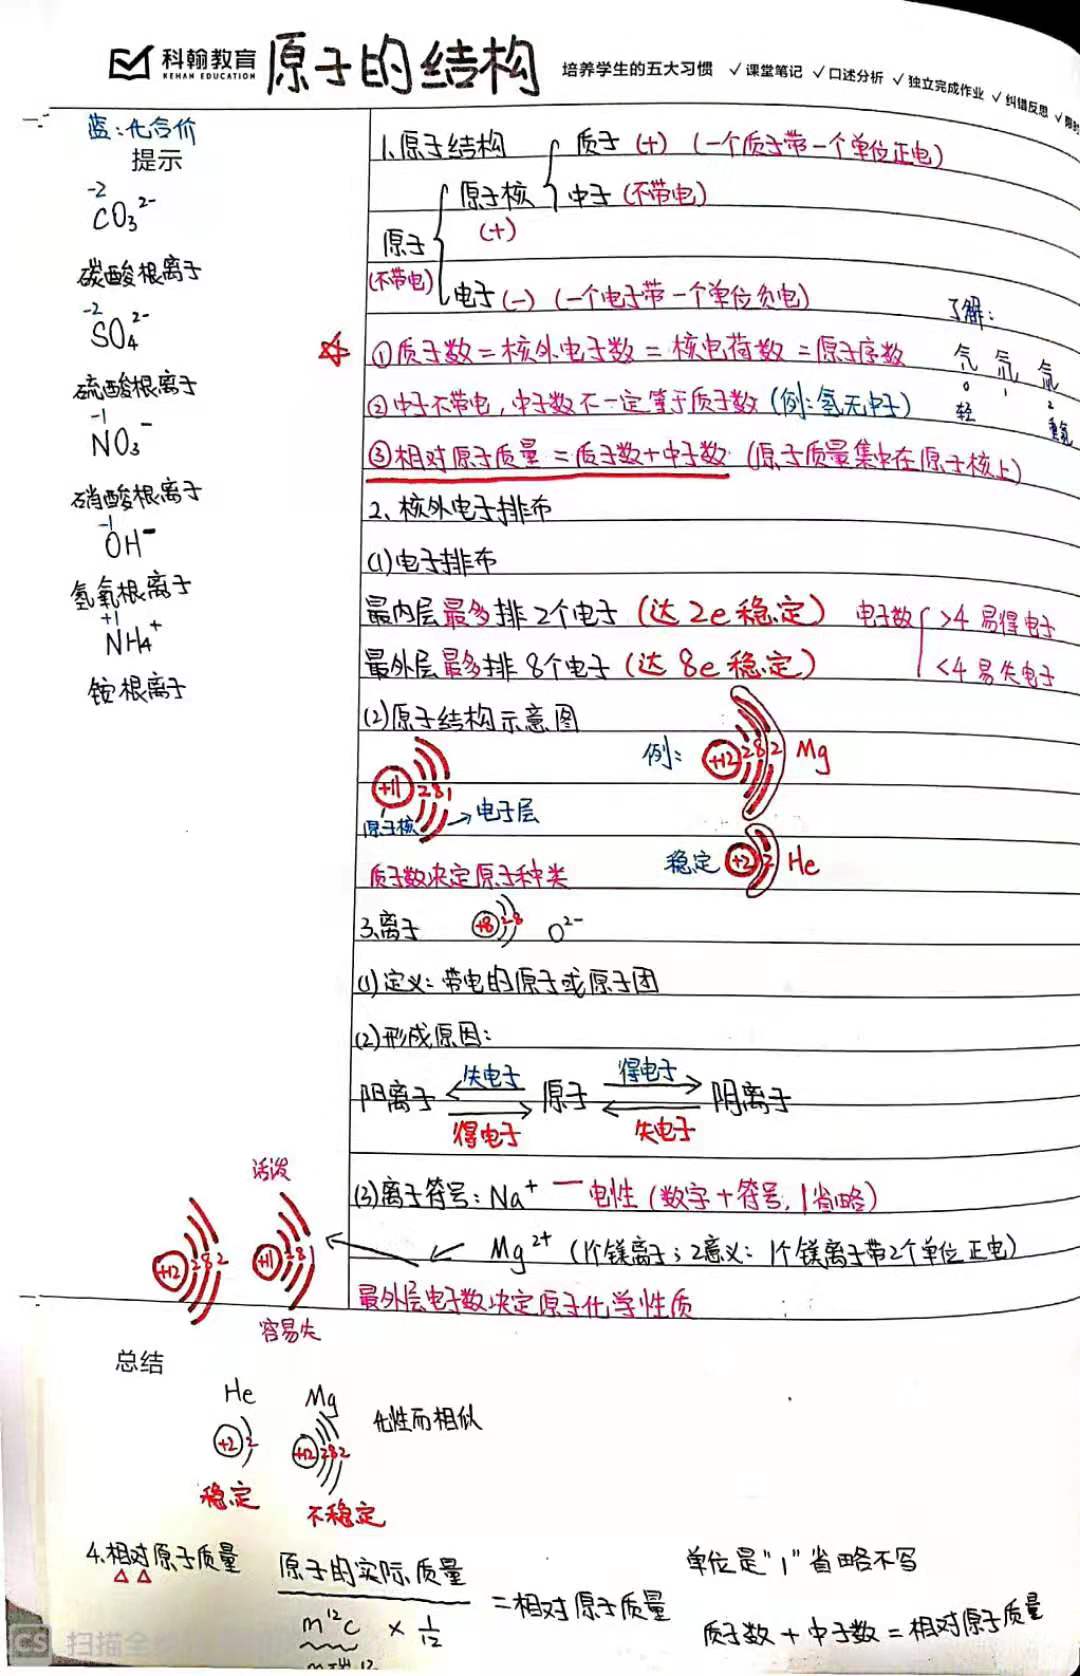 科翰教育
KEHAN EDUCATION
原子的结构
培养学生的五大习惯 ✓课堂笔记 ✓口述分析 ✓独立完成作业 ✓纠错反思 ✓限时
蓝:化合价
提示
-2
CO₃²⁻
碳酸根离子
-2
SO₄²⁻
硫酸根离子
-1
NO₃⁻
硝酸根离子
-1
OH⁻
氢氧根离子
+1
NH₄⁺
铵根离子
1.原子结构
质子(+)(一个质子带一个单位正电)
原子核
(+)
中子(不带电)
原子
(不带电)
电子(-)(一个电子带一个单位负电)
了解:
氕 氘 氚
0 1 2
轻 重氢
①质子数=核外电子数=核电荷数=原子序数
②中子不带电,中子数不一定等于质子数(例:氢无中子)
③相对原子质量=质子数+中子数(原子质量集中在原子核上)
2、核外电子排布
(1)电子排布
最内层最多排2个电子(达2e稳定)
最外层最多排8个电子(达8e稳定)
电子数
>4 易得电子
<4 易失电子
(2)原子结构示意图
+11 2 8 1
原子核
电子层
例:
+12 2 8 2 Mg
稳定 +2 2 He
质子数决定原子种类
3.离子 +8 2 8 O²⁻
(1)定义:带电的原子或原子团
(2)形成原因:
失电子 得电子
阳离子 原子 阴离子
得电子 失电子
(3)离子符号:Na⁺ 一电性(数字+符号,1省略)
Mg²⁺(1个镁离子;2意义:1个镁离子带2个单位正电)
最外层电子数决定原子化学性质
活泼
+12 2 8 2
+11 2 8 1
容易失
总结
He Mg
+2 2
+12 2 8 2
化性而相似
稳定
不稳定
4.相对原子质量
原子的实际质量
m¹²C × 1/12
=相对原子质量
单位是"1"省略不写
质子数+中子数=相对原子质量
CS 扫描全